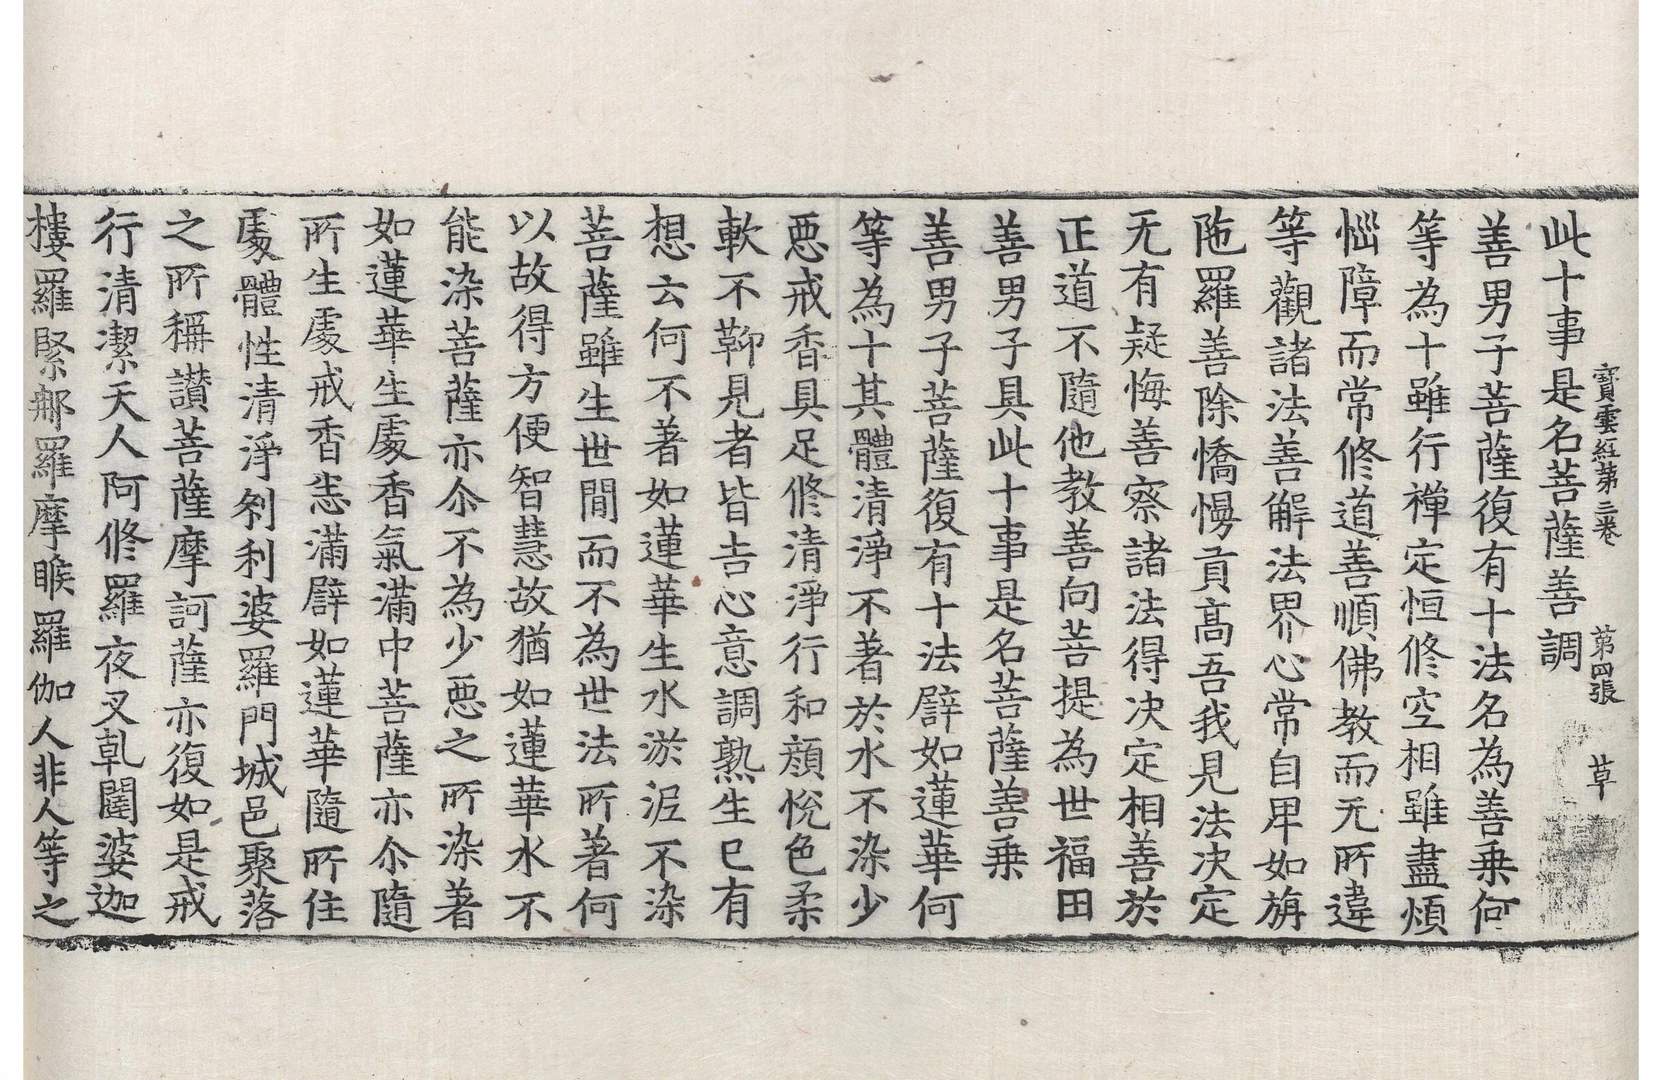 寶雲経第三卷　第四張　草
此十事是名菩薩善調
善男子菩薩復有十法名為善乗何
等為十雖行禅定恒修空相雖盡煩
惱障而常修道善順佛教而无所違
等觀諸法善解法界心常自卑如旃
陁羅善除憍慢貢高吾我見法决定
无有疑悔善察諸法得决定相善於
正道不隨他教善向菩提為世福田
善男子具此十事是名菩薩善乗
善男子菩薩復有十法譬如蓮華何
等為十其體清淨不著於水不染少
惡戒香具足修清淨行和顔悅色柔
軟不䩕見者皆吉心意調熟生已有
想云何不著如蓮華生水淤泥不染
菩薩雖生世間而不為世法所著何
以故得方便智慧故猶如蓮華水不
能染菩薩亦尒不為少惡之所染著
如蓮華生處香氣滿中菩薩亦尒隨
所生處戒香悉滿譬如蓮華隨所住
處體性清淨刹利婆羅門城邑聚落
之所稱讃菩薩摩訶薩亦復如是戒
行清潔天人阿修羅夜叉乹闥婆迦
樓羅緊那羅摩睺羅伽人非人等之